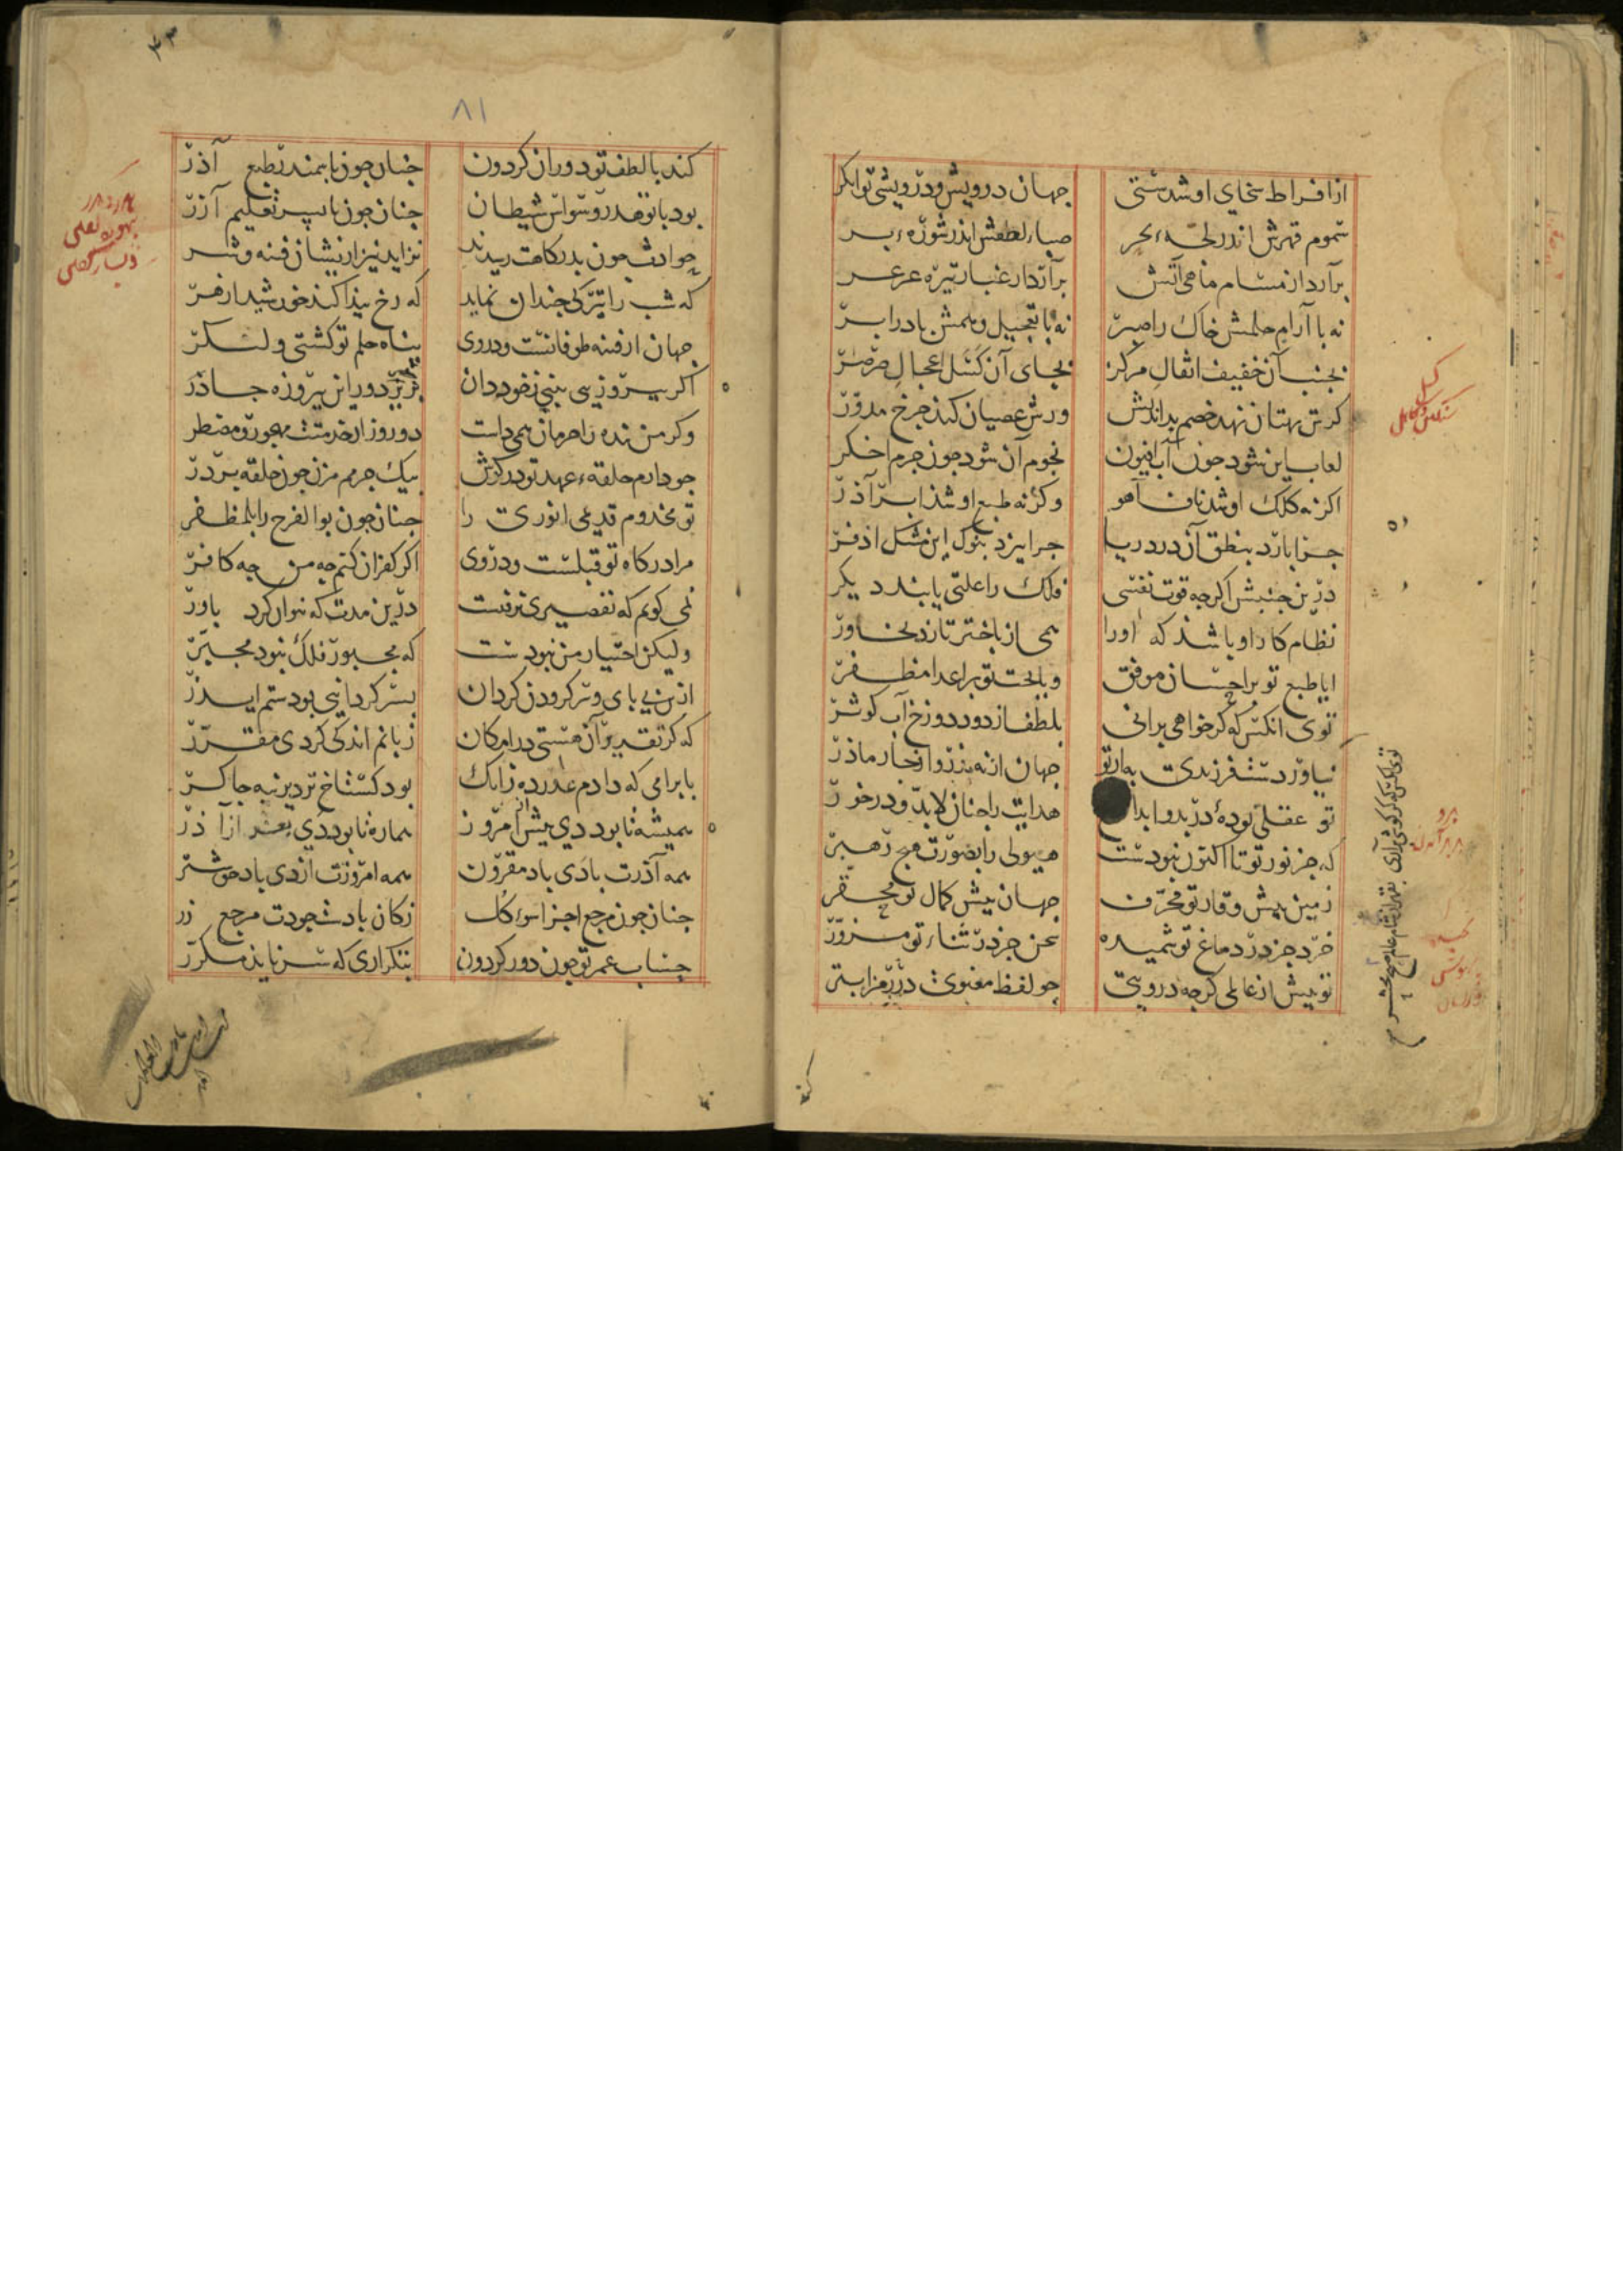 از افراط سخای او شدستی جهان درویش و درویشی توانکر
سموم قهرش اندر لجهٔ بحر صباء لطفش اندر شورهٔ بر
برآرد از مسام ماهی آتش برآرد از غبار تیره عرعر
نه با آرام حلمش خاک را صبر نه با تعجیل وهمش باد را بر
بجنب آن خفیف اثقال مرکز بجای آن کسل اعجال صرصر
کرش بهتان نهد خصم بداندیش ورش عصیان کند چرخ مدور
لعاب این شود جون آب افیون نجوم آن شود جون جرم اخکر
اکر نه کلک او شد ناف آهو وکر نه طبع او شد ابر آذر
جرا بارد بنطق آن در دریا جرا ریزد بنوک این مشک اذفر
درین جنبش اکر جه قوت نفسی فلک را علتی یابند دیکر
نظام کار او باشد که او را همی از باختر تازد بخاور
ایا طبع تو بر احسان موفق و یا بخت تو بر اعدا مظفر
توی انکس که کر خواهی برانی بلطف از دود دوزخ آب کوثر
نیاوردست فرزندی بهار تو جهان از نه بذر وز جار ماذر
تو عقلی بودهٔ در بدو ابداع هدایت را جنان لابد و درخور
که جز نور تو تا اکنون نبودست هیولی را بصورت هیج رهبر
زمین بیش وقار تو مجرف جهان بیش کمال تو محقر
خرد جز در دماغ تو شمیده سخن جز در ثناء تو مزور
تو بیش از عالمی کرجه دروبی جو لفظ معنوی در رمز ابتر
کسل
توی انکس که کر کوشی برآری بقهر از شام عالم صبح محشر
۸۱
کند با لطف تو دوران کردون جنان جون با سمندر طبع آذر
بود با تو قدر وسواس شیطان جنان جون با بسر تعلیم آزر
حوادث جون بدرکاهت رسیدند نزاید نیز ازیشان فتنه و شر
که شب را تیرکی جندان نماید که رخ بیدا کند خورشید ازهر
جهان از فتنه طوفانست و در وی بناه حلم تو کشتی و لنکر
اکر بیروزیی بینی ز خود دان بزیر دور این بیروزه جادر
وکر من بنده را حرمان همی داشت دو روز از خدمتت مهجور و مضطر
جو دارم حلقهٔ عهد تو در کوش بیک جرمم مزن جون حلقه بر در
تو مخدوم قدیمی انوری را جنان جون بوالفرج را بلمظفر
مرا درکاه تو قبلست و در وی اکر کفران کنم جه من جه کافر
نمی کویم که تقصیری نرفتست درین مدت که نتوان کرد باور
ولیکن اختیار من نبودست که مجبور فلک نبود مجبر
ازین بی بای و سر کردون کردان بسر کردانیی بودستم ایدر
که کر تقدیر آن هستی در امکان زبانم اندکی کردی مقرر
با برامی که دادم عذر ده زانک بود کستاخ تر دیرینه جاکر
همیشه تا بود دی بیش از امروز هماره تا بود دی بعد از آذر
همه آذرت با دی باد مقرون همه امروزت از دی باد خوشتر
جنان جون مرجع اجزا سوء کل ز کان باد بجودت مرجع زر
حساب عمر تو جون دور کردون بتکراری که سر ناید مکرر